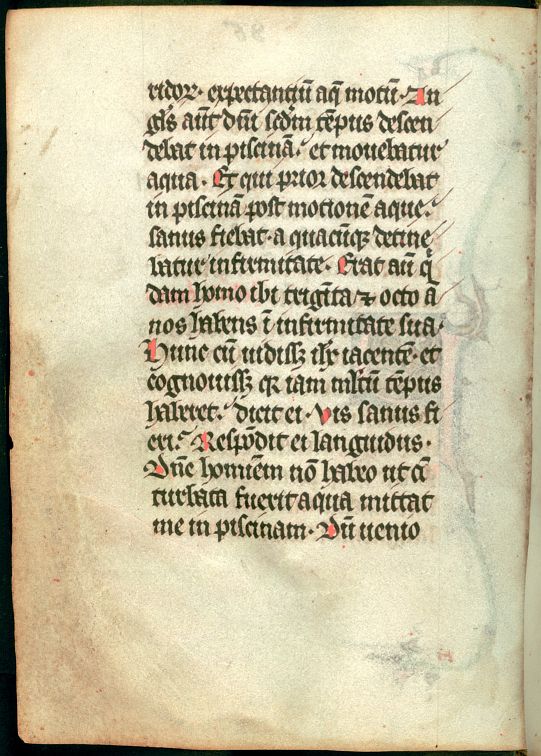 ridoꝝ · expectanciū aq̄ motū · An
gl̄s aūt dn̄i sc̄dm tēpus descen
debat in piscinā · et mouebatur
aqua · Et qui prior descendebat
in piscinā post motionē aque ·
sanus fiebat · a quacūqꝫ detine
batur infirmitate · Erat aūt q̇
dam homo ibi triginta ⁊ octo ā
nos habens ī infirmitate sua ·
Hunc cū uidissꝫ ihc iacentē · et
cognouissꝫ qꝛ iam ml̄tū tēpus
haberet · dicit ei · Vis sanus fi
eri · Respōdit ei languidus ·
Dn̄e hominem nō habeo ut cū
turbata fuerit aqua mittat
me in piscinam · Dū uenio